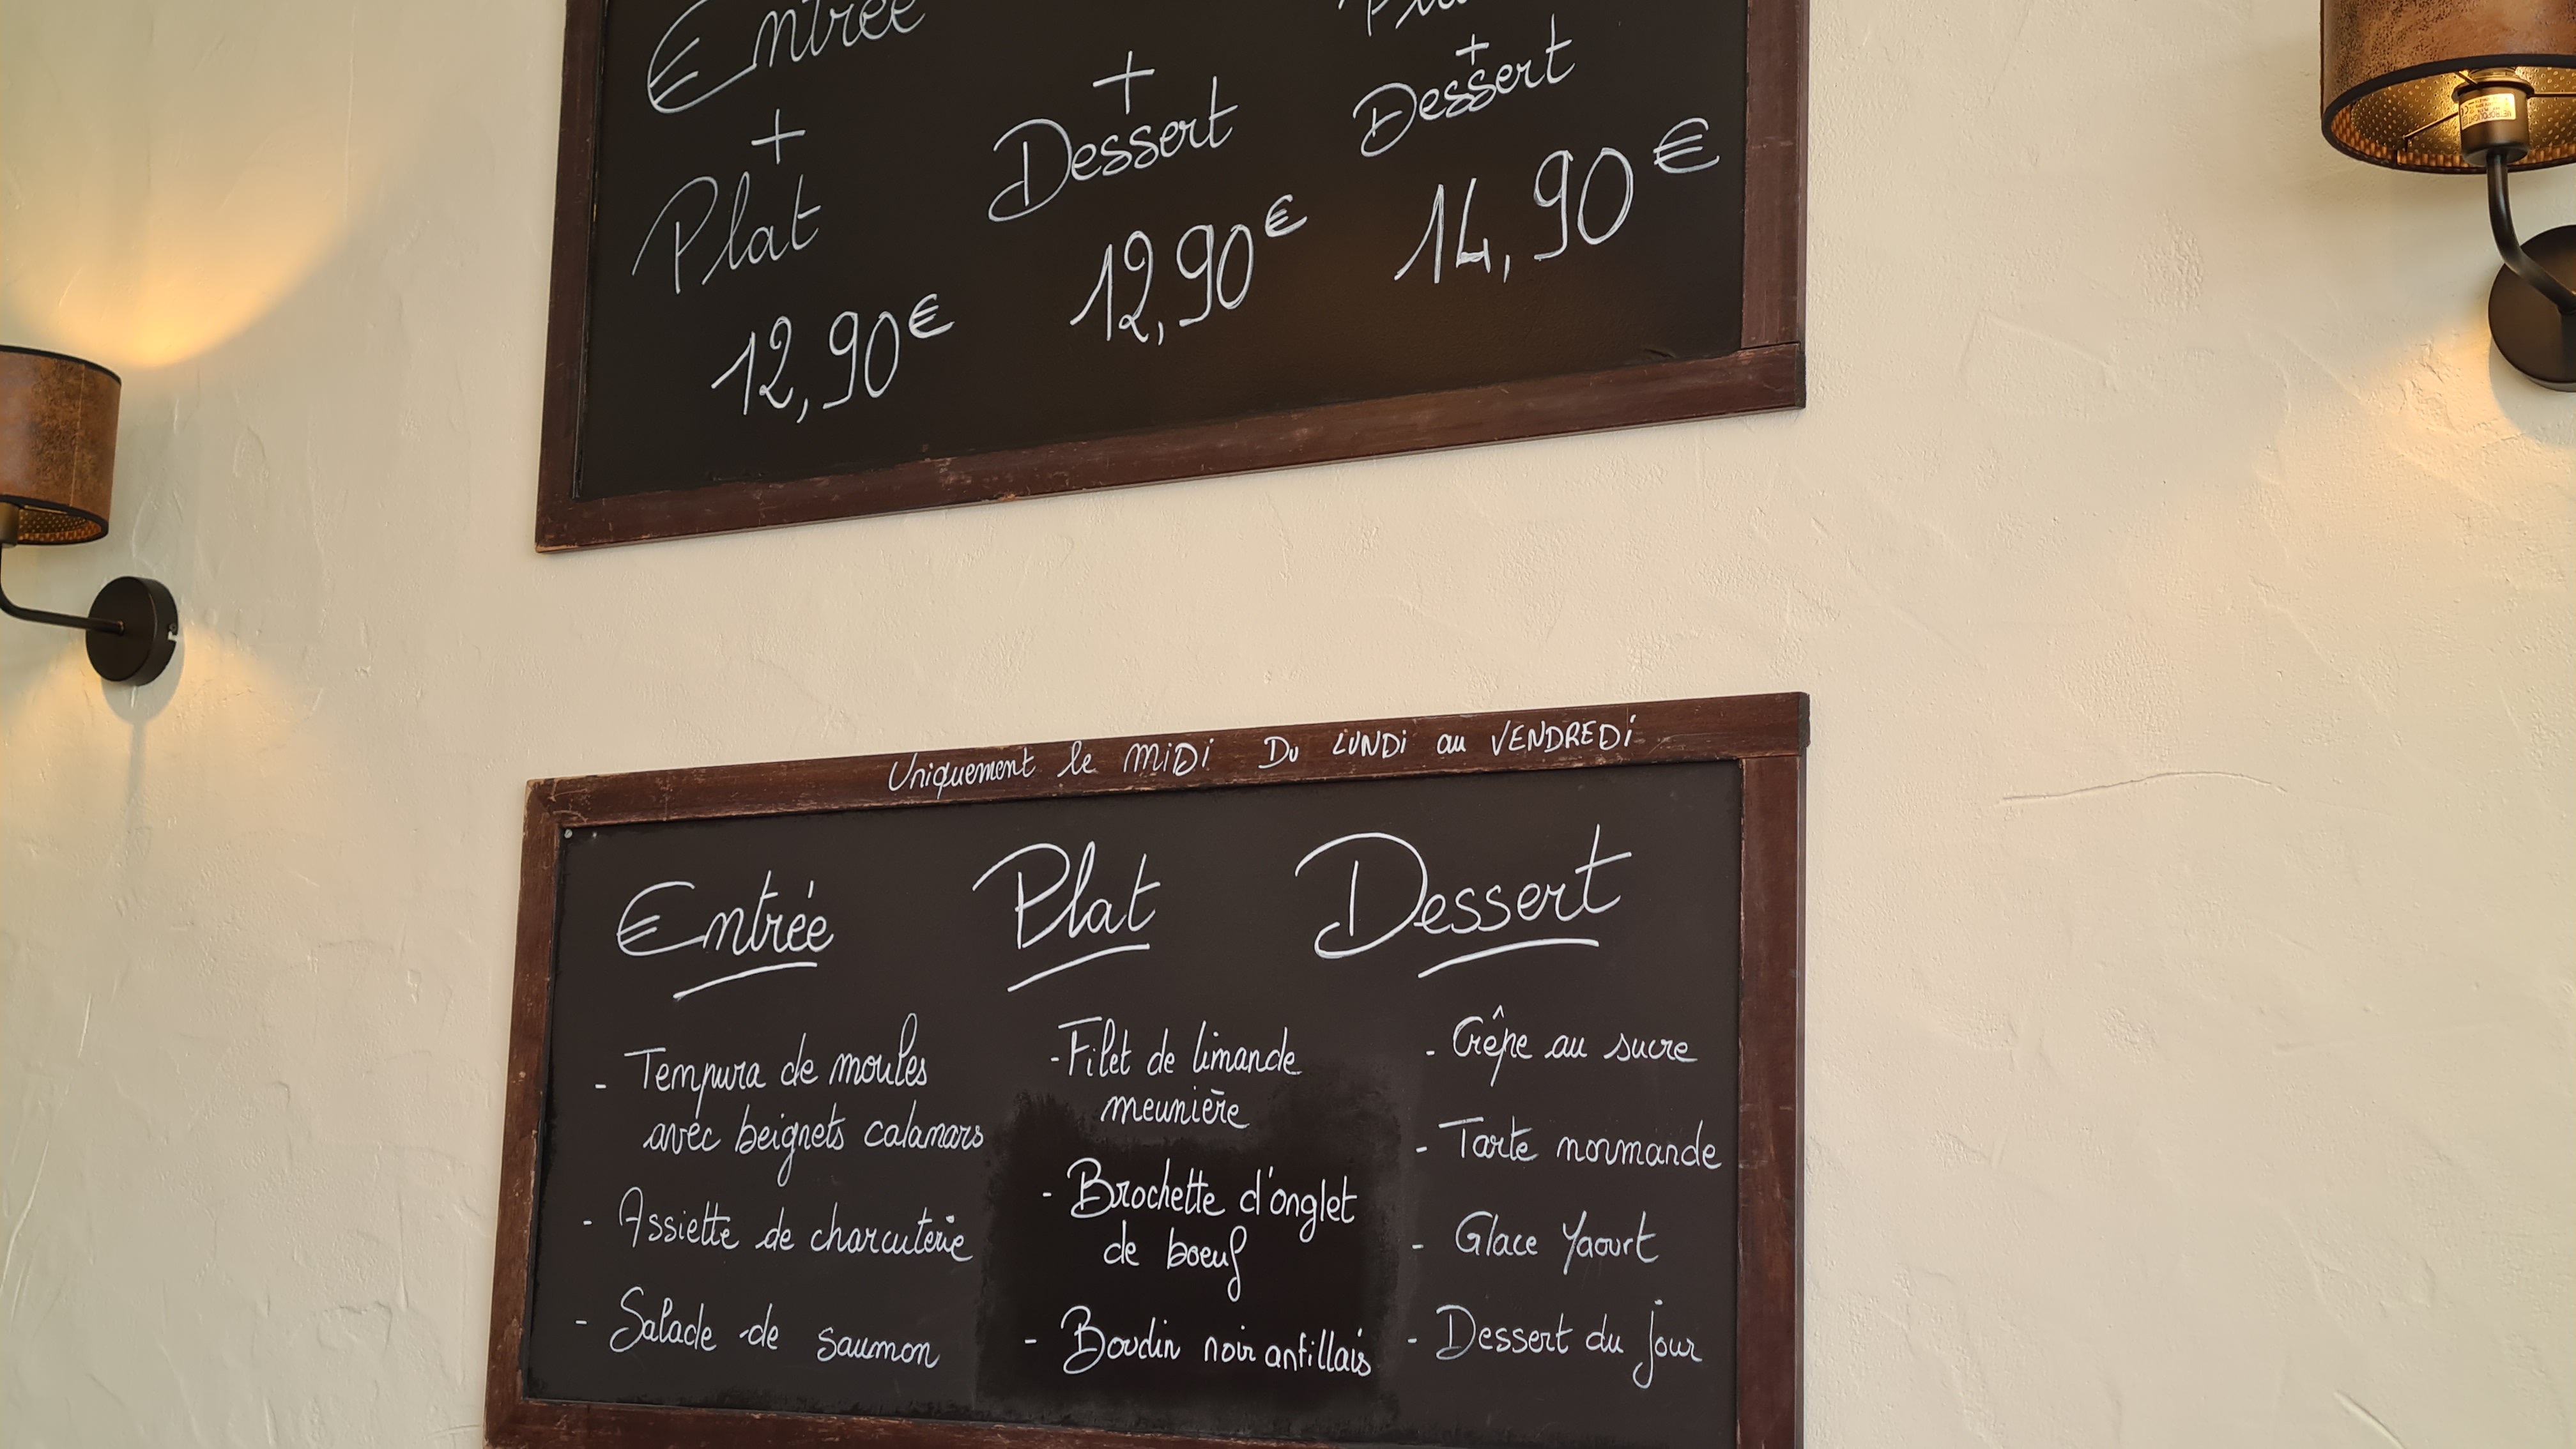 Entrée
+
Plat
12,90€
+
Dessert
12,90€
+
Dessert
14,90€
Uniquement le MiDi Du LUNDi au VENDREDi
Entrée
- Tempura de moules
avec beignets calamars
- Assiette de charcuterie
- Salade de saumon
Plat
- Filet de limande
meunière
- Brochette d'onglet
de boeuf
- Boudin noir antillais
Dessert
- Crêpe au sucre
- Tarte normande
- Glace Yaourt
- Dessert du jour